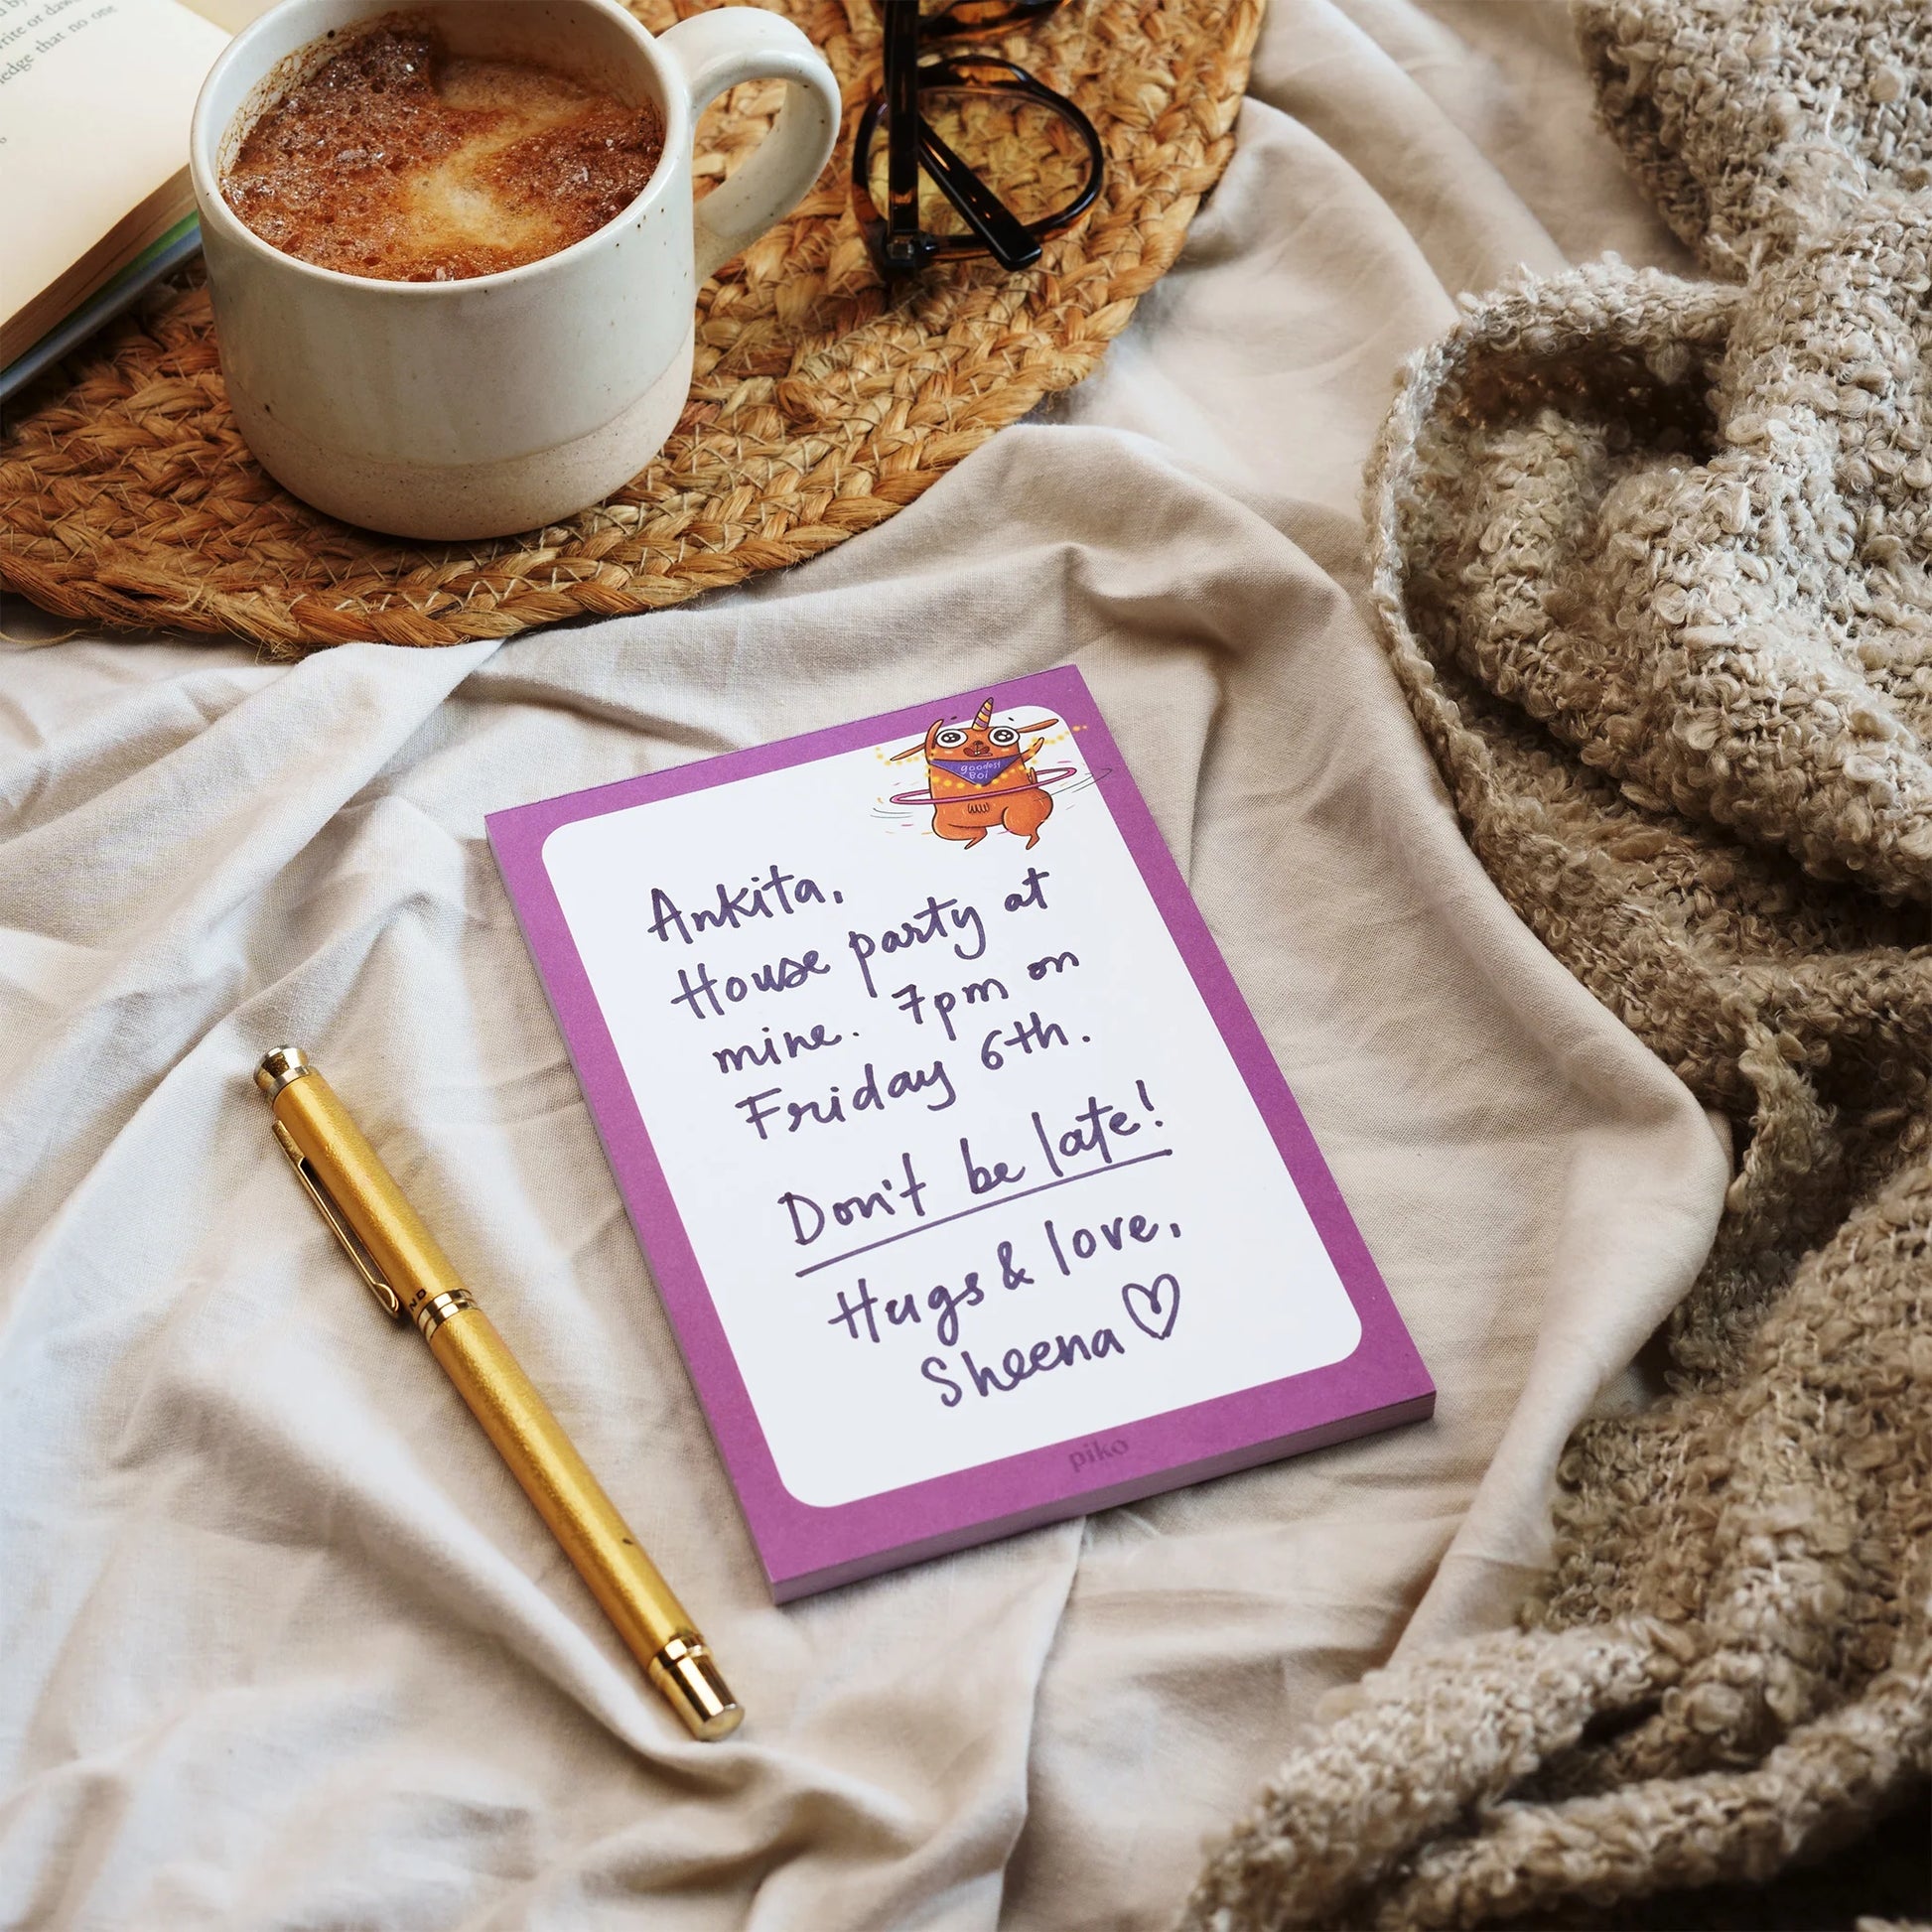 write or daw
edge that no one
goodest
BOI
Ankita,
House party at
mine. 7pm on
Friday 6th.
Don't be late!
Hugs & love,
Sheena
piko
ND